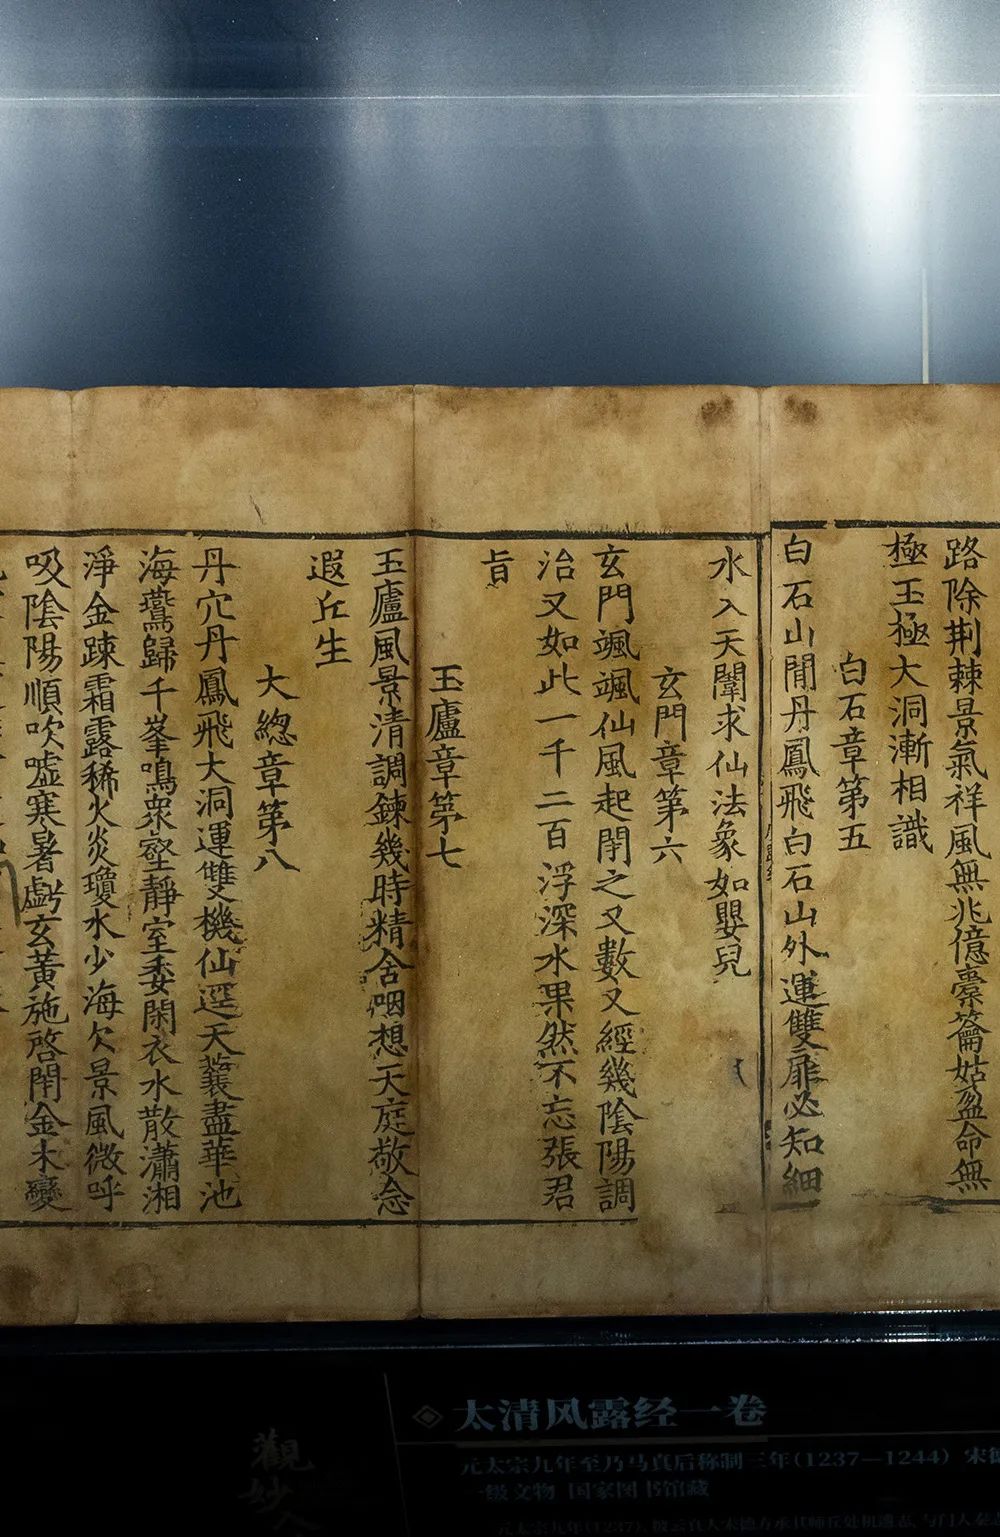 路除荆棘景氣祥風無兆億橐籥姑盈命無
極玉極大洞漸相識
白石章第五
白石山閒丹鳳飛白石山外運雙扉必知細
水入天闈求仙法象如嬰兒
玄門章第六
玄門颯颯仙風起閉之又數又經幾陰陽調
治又如此一千二百浮深水果然不忘張君
旨
玉廬章第七
玉廬風景清調鍊幾時精舍咽想天庭敬念
遐丘生
大總章第八
丹穴丹鳳飛大洞運雙機仙逕天叢盡華池
海鷰歸千峯鳴衆壑靜室委閑衣水散瀟湘
淨金踈霜露稀火炎瓊水少海欠景風微呼
吸陰陽順吹噓寒暑虧玄黃施啓閉金木變
太清风露经一卷
元太宗九年至乃马真后称制三年(1237—1244) 宋德
一级文物 国家图书馆藏
觀妙入
元太宗九年(1237),披云真人宋德方承其师丘处机遗志,与门人秦